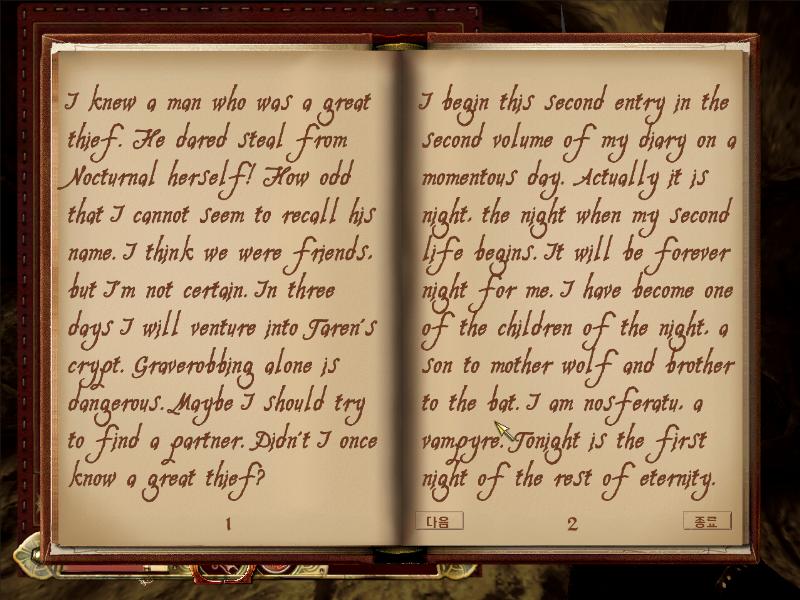 I knew a man who was a great
thief. He dared steal from
Nocturnal herself! How odd
that I cannot seem to recall his
name. I think we were friends,
but I'm not certain. In three
days I will venture into Taren's
crypt. Graverobbing alone is
dangerous. Maybe I should try
to find a partner. Didn't I once
know a great thief?
1
I begin this second entry in the
second volume of my diary on a
momentous day. Actually it is
night, the night when my second
life begins. It will be forever
night for me. I have become one
of the children of the night, a
son to mother wolf and brother
to the bat. I am nosferatu, a
vampyre. Tonight is the first
night of the rest of eternity.
다음
2
종료